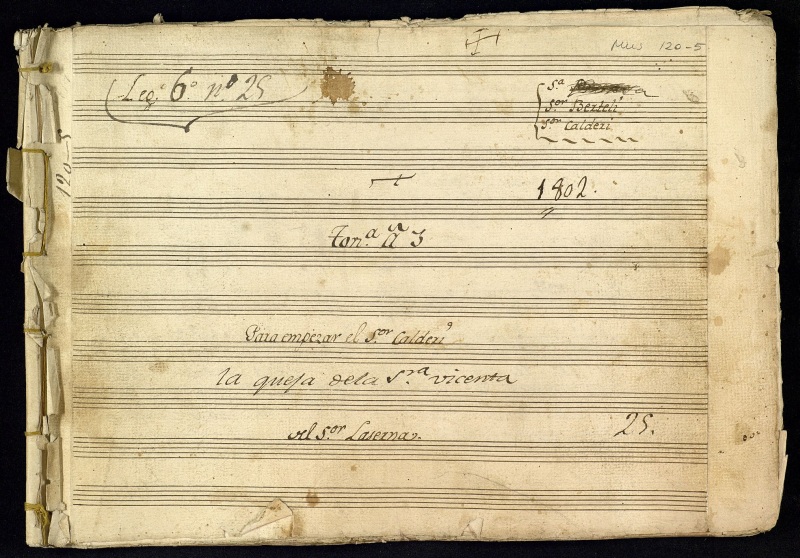 Mus 120-5
Leg.º 6.º nº 25
S.ª
S.or Berteli
S.or Calderi
120-5
1802.
Ton.ª â 3
Para empezar el S.or Calderi
la queja dela S.ra vicenta
del S.or Laserna.
25.